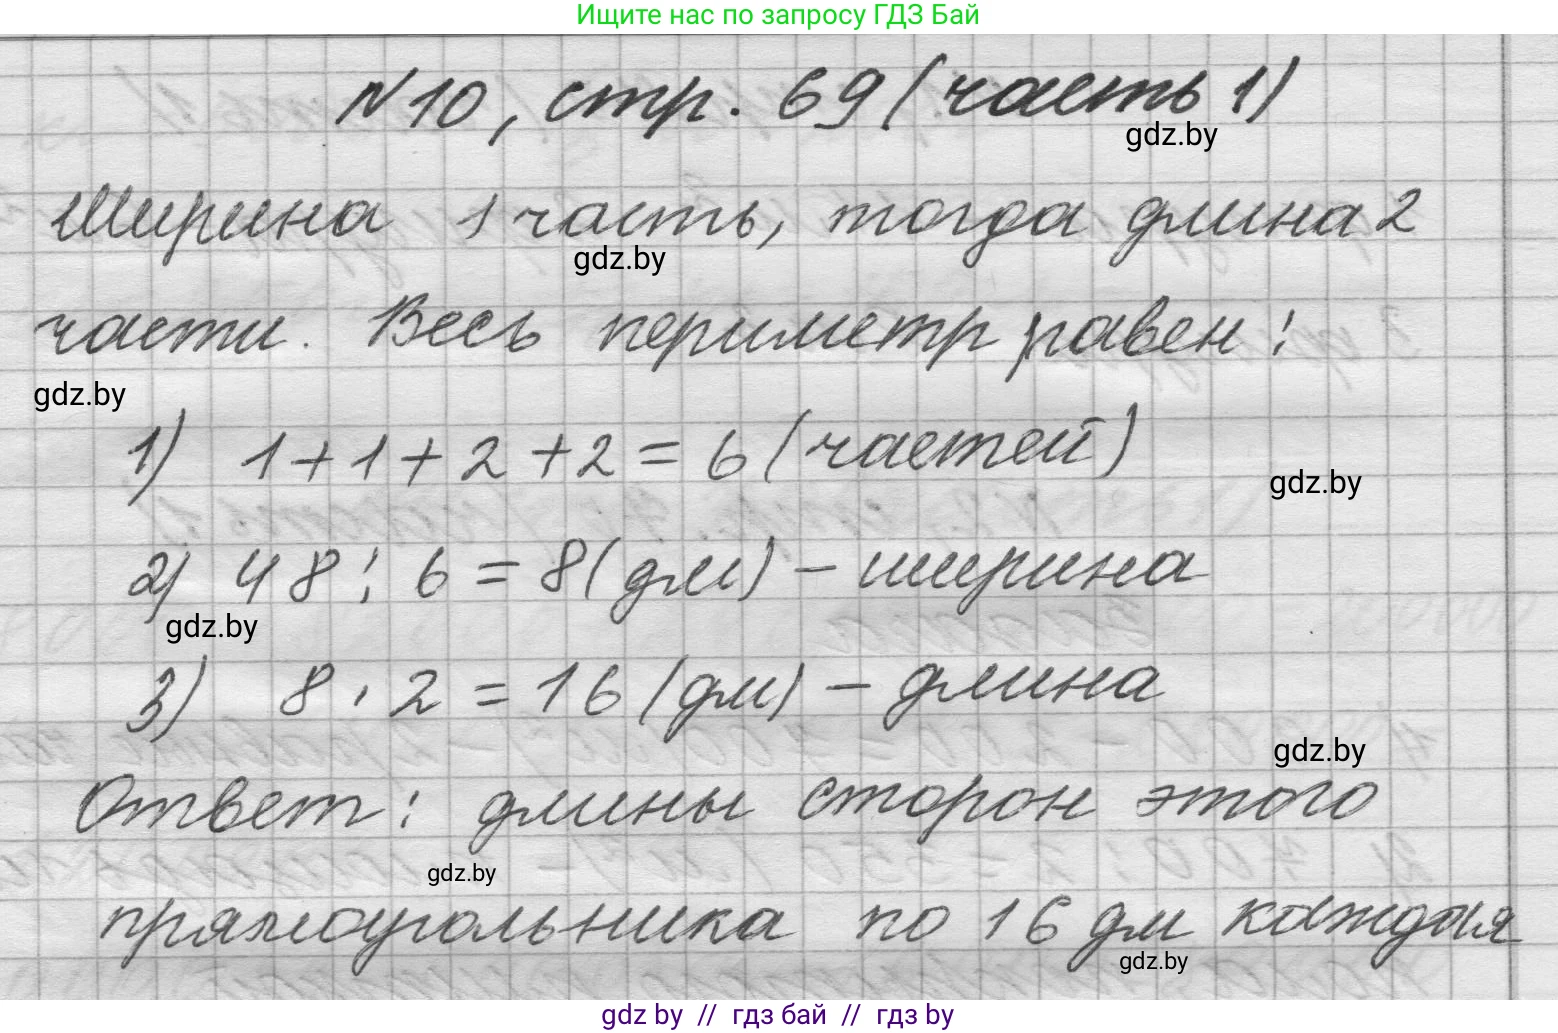 Ищите нас по запросу ГДЗ Бай
№10, стр. 69 (часть 1)
gdz.by
Ширина 1 часть, тогда длина 2
gdz.by
части. Весь периметр равен:
gdz.by
1) 1 + 1 + 2 + 2 = 6 (частей)
gdz.by
2) 48 : 6 = 8 (дм) - ширина
gdz.by
3) 8 · 2 = 16 (дм) - длина
gdz.by
Ответ: длины сторон этого
gdz.by
прямоугольника по 16 дм каждая
gdz.by
gdz by // гдз бай // gdz by